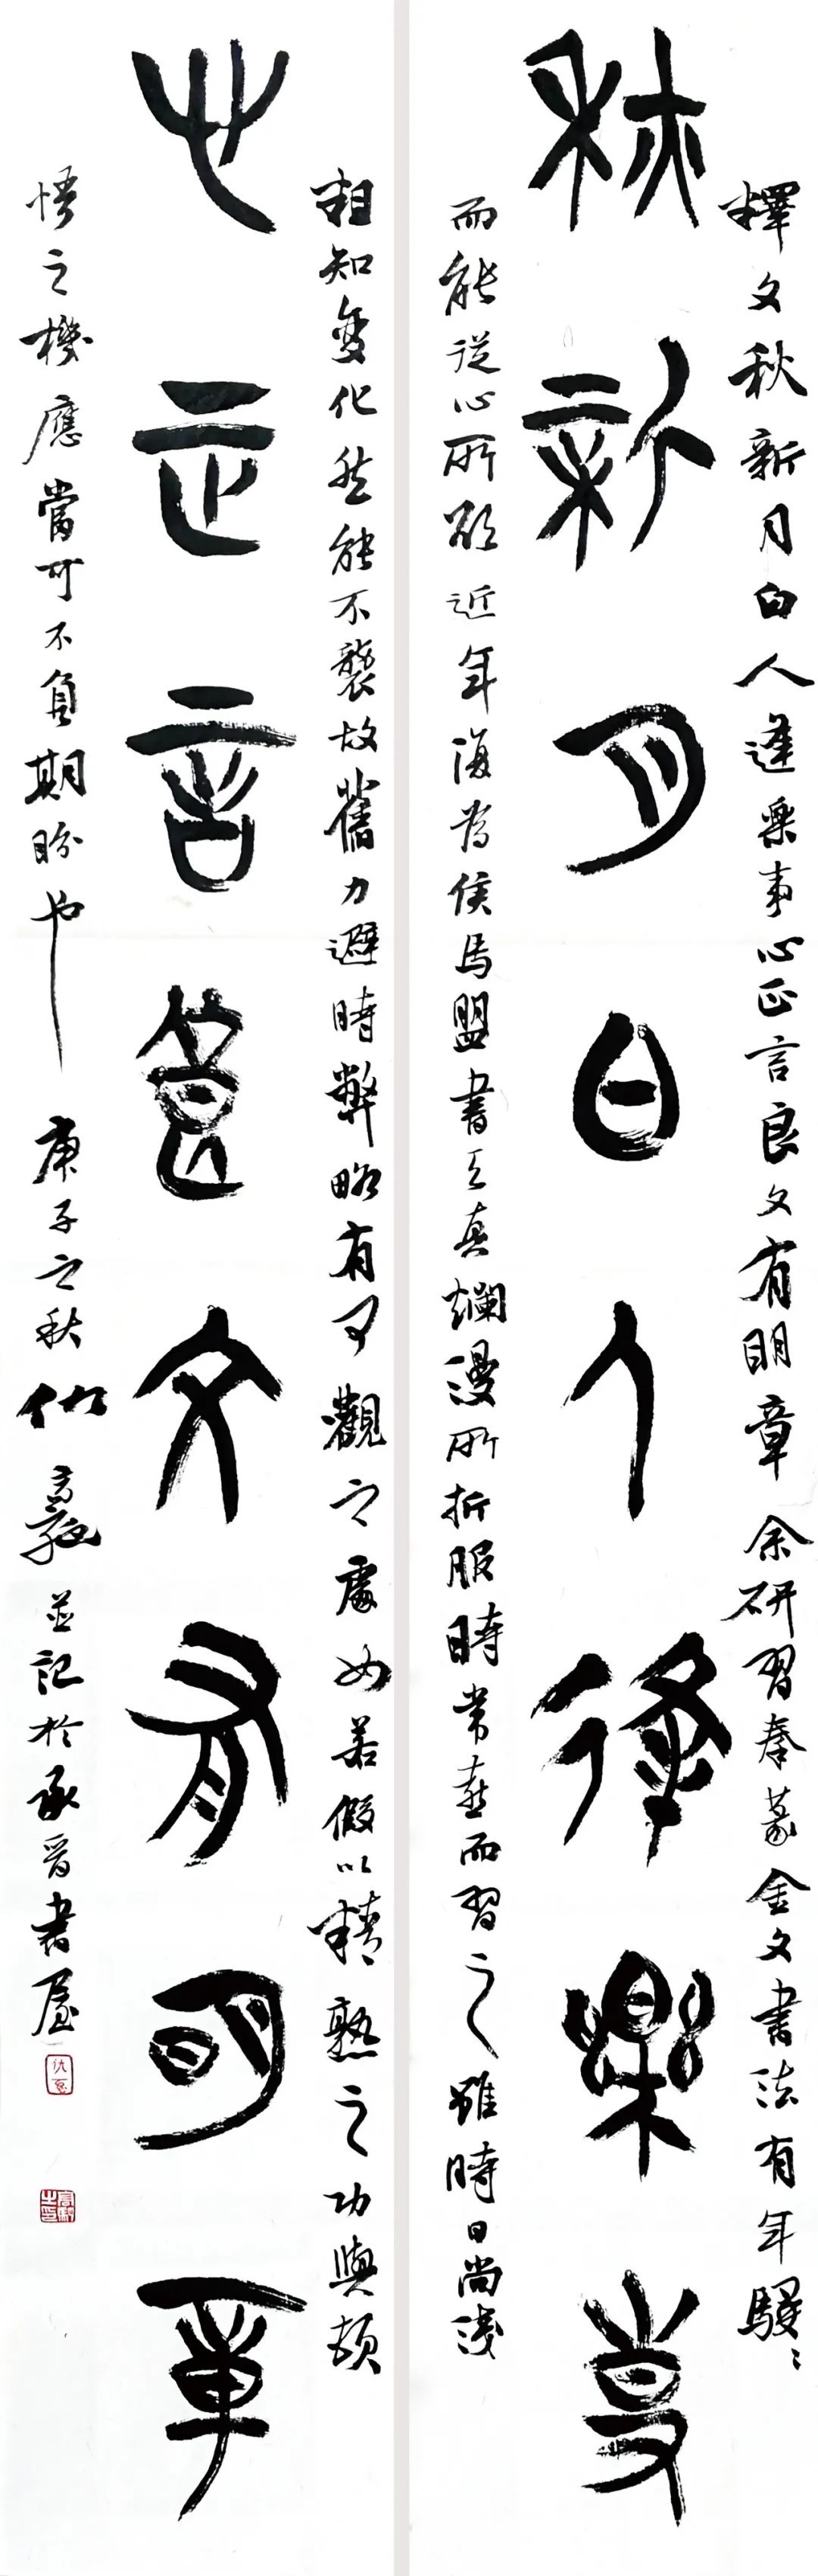 釋文秋新月白人逢樂事心正言良文有明章余研習秦篆金文書法有年駸〻
秋新月白人逢樂事
而能從心所欲近年復為侯馬盟書天真爛漫所折服時常喜而習之雖時日尚淺
粗知變化然能不襲故舊力避時弊略有可觀之處如若假以精熟之功與頓
心正言良文有明章
悟之機應當可不負期盼也庚子之秋仇高馳並記於承晉書屋